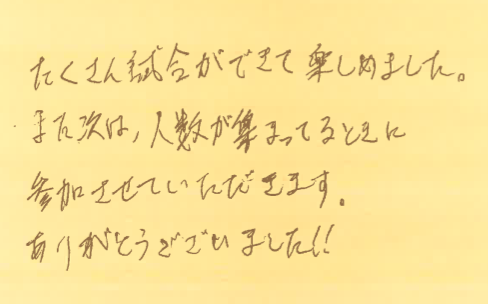 たくさん試合ができて楽しめました。
また次は、人数が集まってるときに
参加させていただきます。
ありがとうございました!!